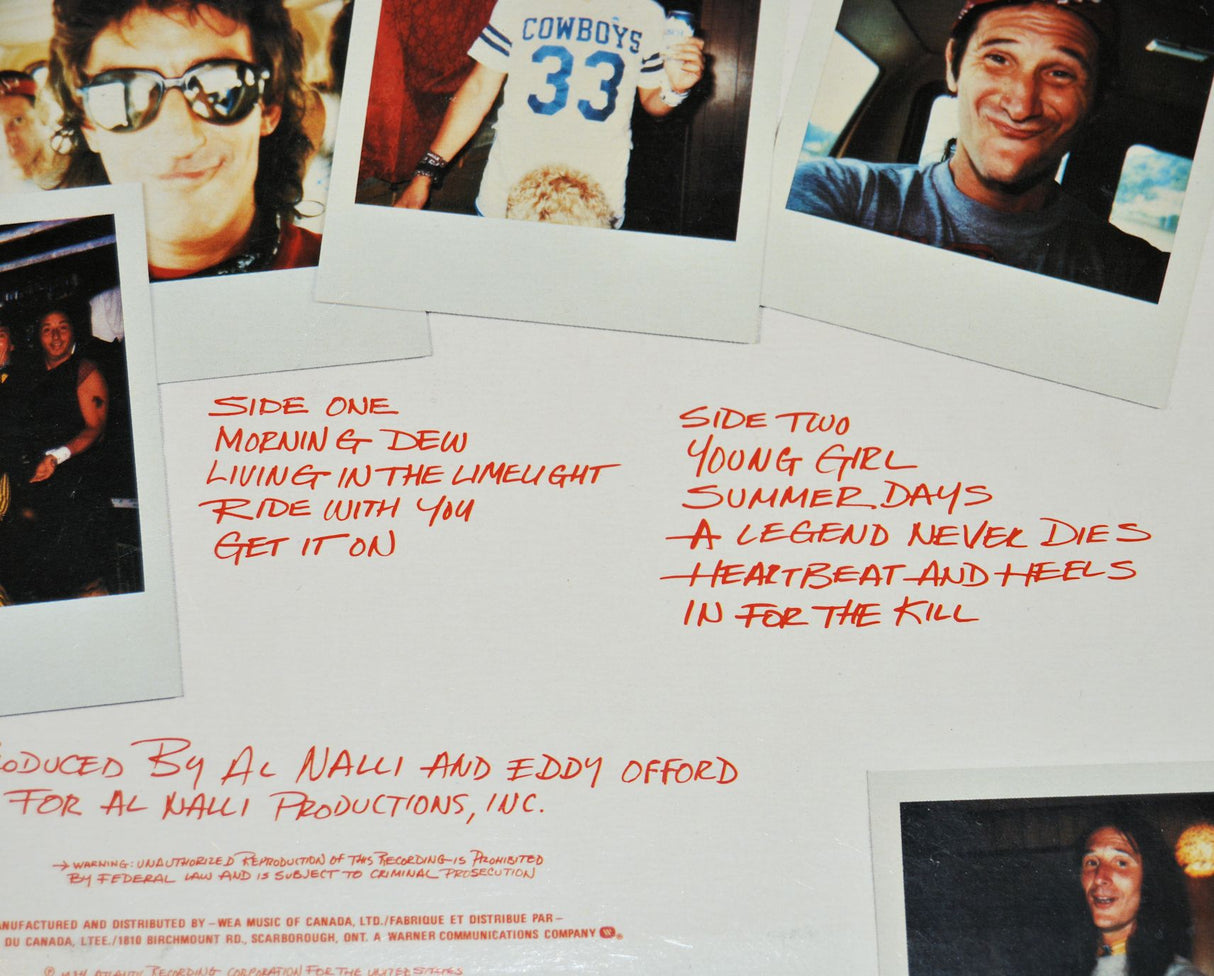 COWBOYS
33
SIDE ONE
MORNING DEW
LIVING IN THE LIMELIGHT
RIDE WITH YOU
GET IT ON
SIDE TWO
YOUNG GIRL
SUMMER DAYS
A LEGEND NEVER DIES
HEARTBEAT AND HEELS
IN FOR THE KILL
ODUCED BY AL NALLI AND EDDY OFFORD
FOR AL NALLI PRODUCTIONS, INC.
→ WARNING: UNAUTHORIZED REPRODUCTION OF THIS RECORDING IS PROHIBITED
BY FEDERAL LAW AND IS SUBJECT TO CRIMINAL PROSECUTION
ANUFACTURED AND DISTRIBUTED BY – WEA MUSIC OF CANADA, LTD./FABRIQUE ET DISTRIBUE PAR –
DU CANADA, LTEE./1810 BIRCHMOUNT RD., SCARBOROUGH, ONT. A WARNER COMMUNICATIONS COMPANY
℗ ATLANTIC RECORDING CORPORATION FOR THE UNITED STATES